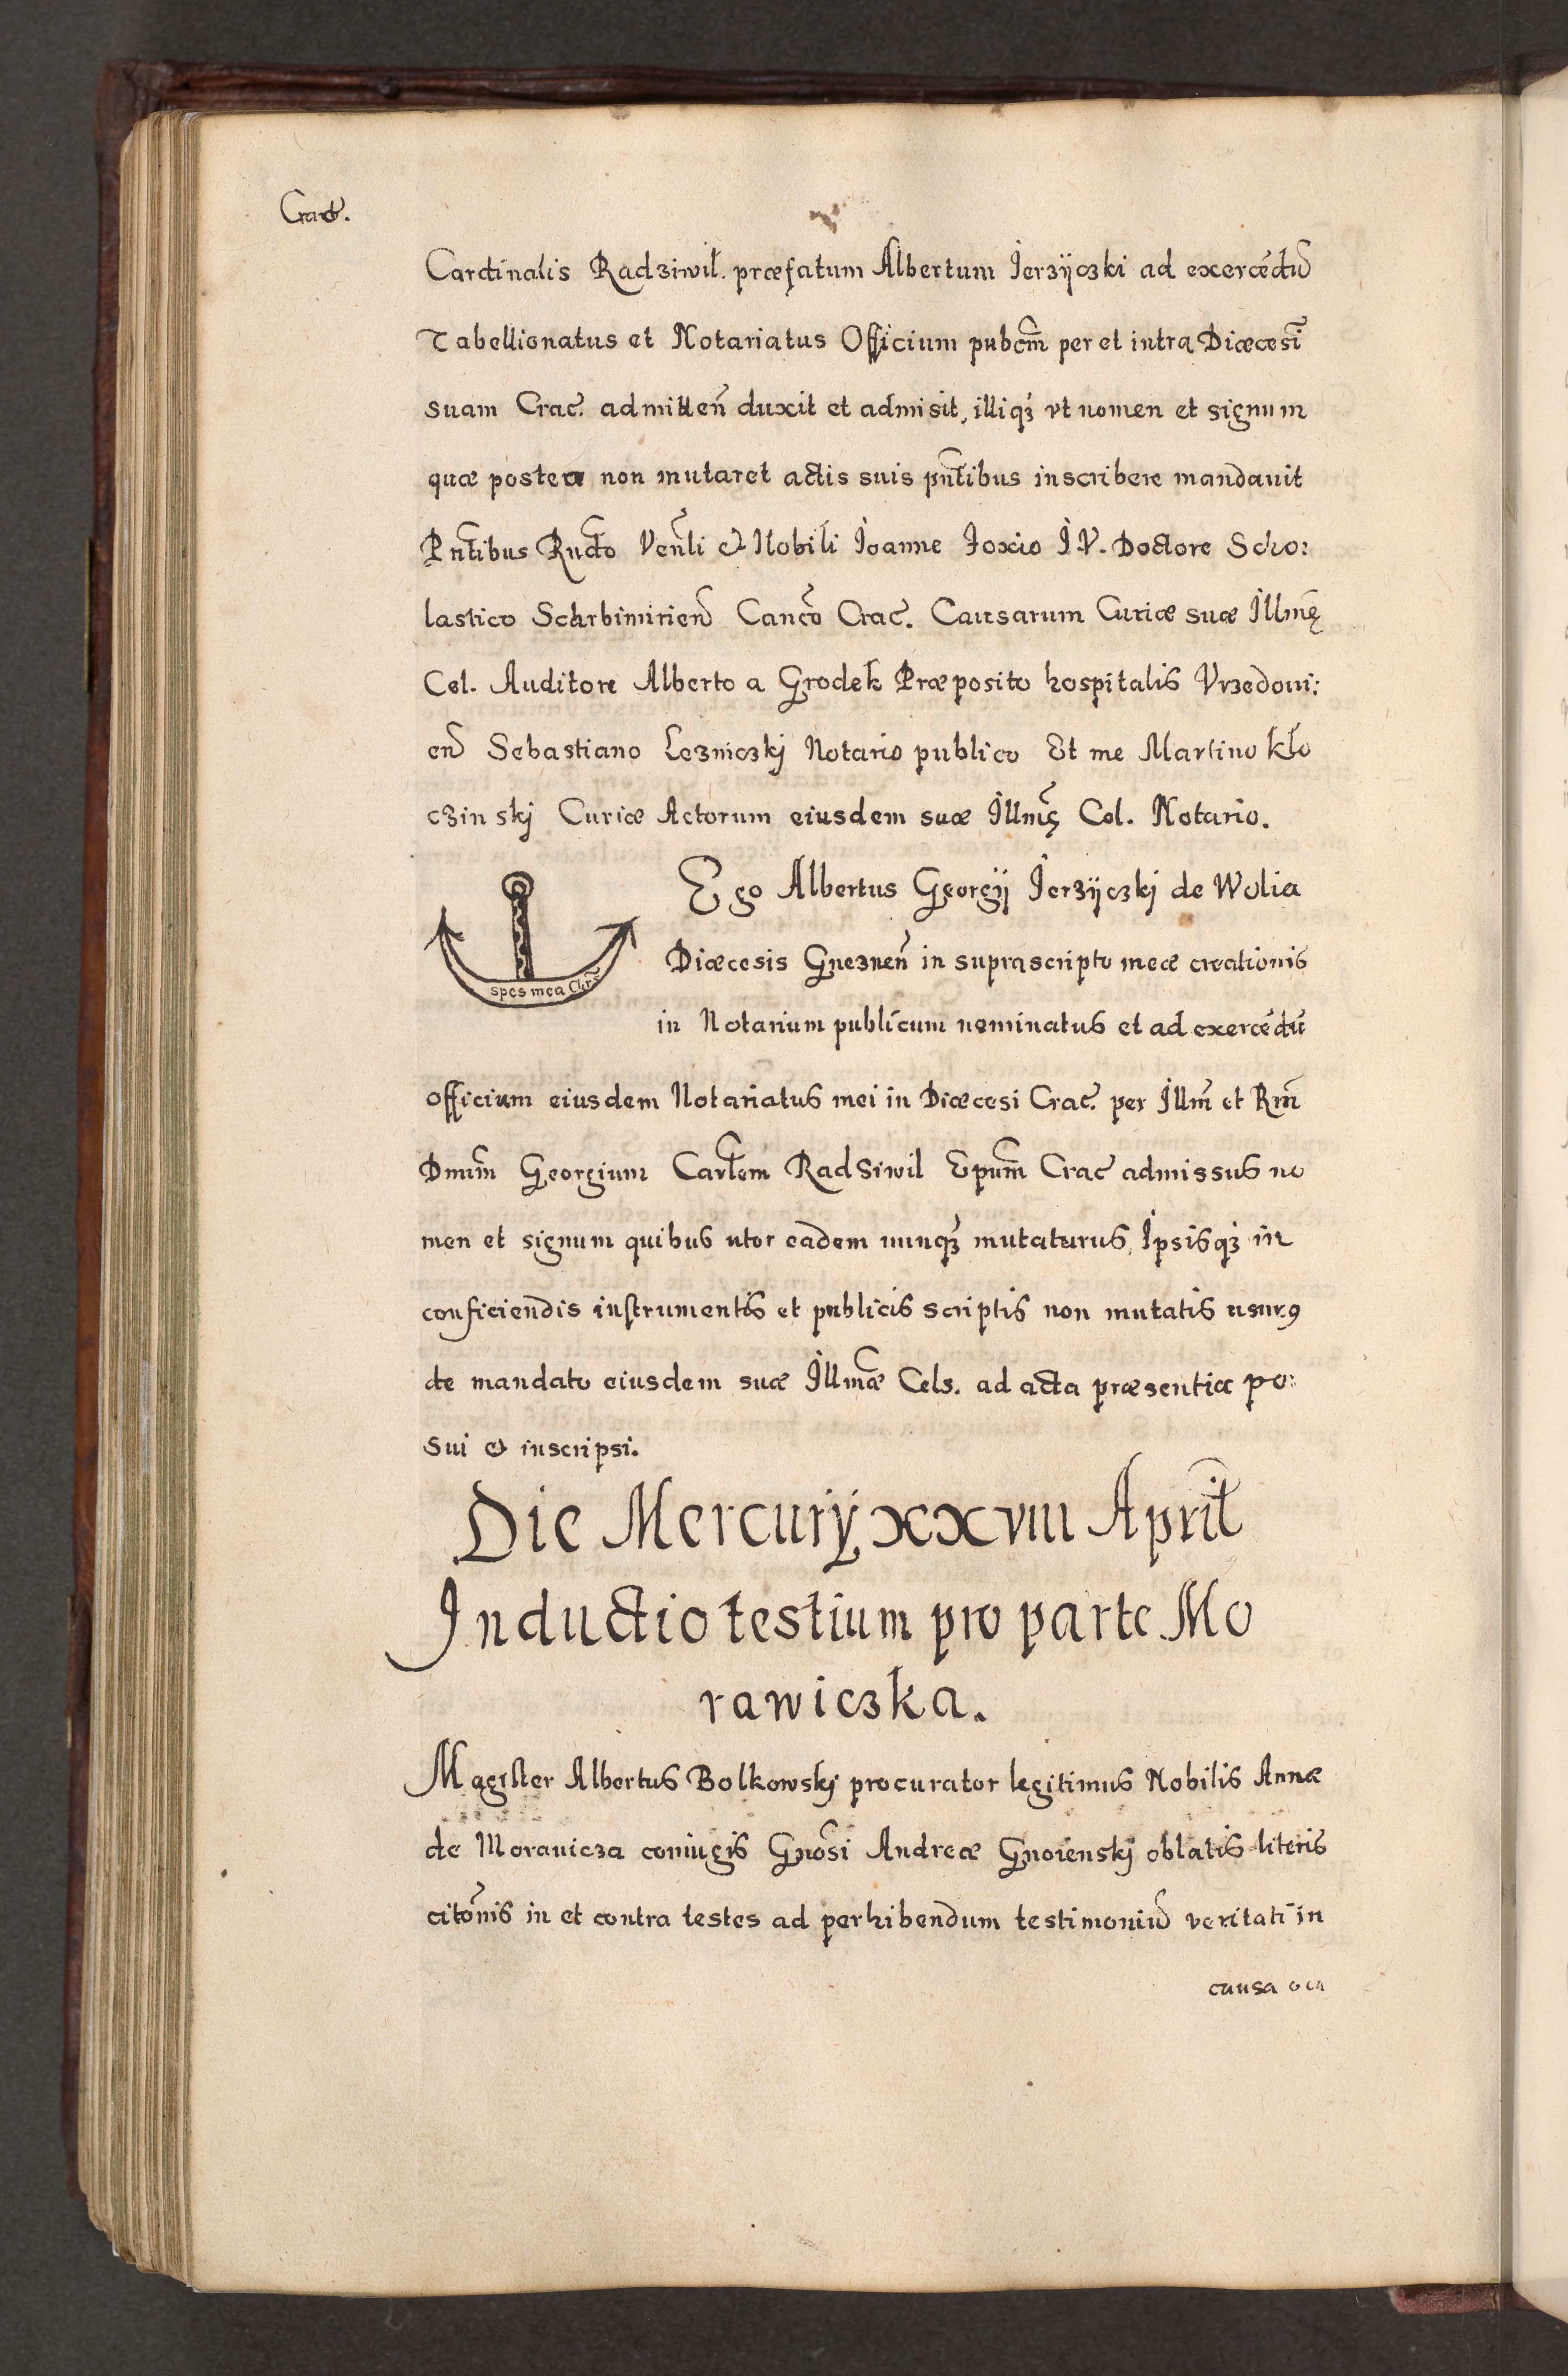 Crac.
Cardinalis Radziwil. præfatum Albertum Jerzÿczki ad exercēdũ
Tabellionatus et Notariatus Officium pubcm̃ per et intra Diœcesĩ
suam Crac. admitten̄ duxit et admisit, illiqʒ vt nomen et signum
quæ postea non mutaret actis suis pñtibus inscribere mandauit
Pñtibus Rndo Venli & Nobili Joanne Foxio J.V. Doctore Scho:
lastico Scarbimirien̄ Canco Crac. Causarum Curiæ suæ Illmę
Cel. Auditore Alberto a Grodek Præposito hospitalis Vrzedoui:
en̄ Sebastiano Lezniczkj Notario publico Et me Martino kło
czinskj Curiæ Actorum eiusdem suæ Illmę Cel. Notario.
Ego Albertus Georgij Jerzÿczkj de Wolia
spes mea Chrs̃
Diœcesis Gneznen̄ in suprascripto meæ creationis
in Notarium publicum nominatus et ad exercēdũ
officium eiusdem Notariatus mei in Diœcesi Crac. per Illm̃ et Rm̃
Dnum̃ Georgium Cartem Radsiwil Epum̃ Crac admissus no
men et signum quibus utor eadem nunqʒ mutaturus, Ipsisqʒ in
conficiendis instrumentis et publicis scriptis non mutatis usur9
de mandato eiusdem suæ Illmæ Cels. ad acta præsentia po:
sui & inscripsi.
Die Mercurÿ xxviii April
Inductio testium pro parte Mo
rawiczka.
Magister Albertus Bolkowskj procurator legitimus Nobilis Annæ
de Morauicza coniugis Gnosi Andreæ Gnoienskj oblatis literis
citonis in et contra testes ad perhibendum testimoniũ veritati in
causa